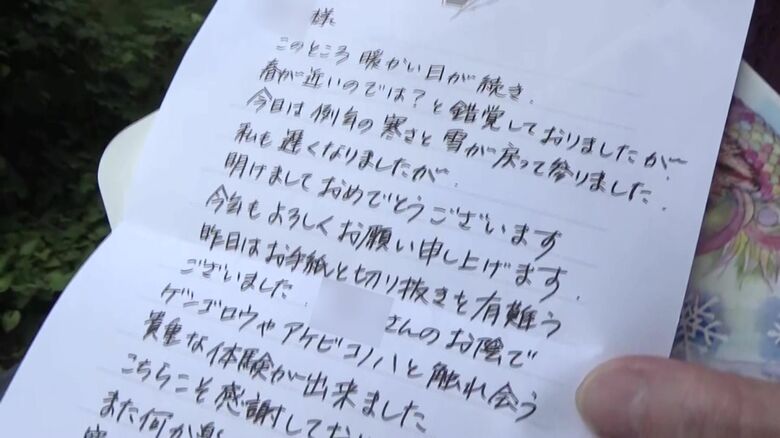 様
このところ 暖かい日が 続き、
春が近いのでは？と錯覚しておりましたが
今日は例年の寒さと雪が戻って参りました。
私も遅くなりましたが、
明けましておめでとうございます
今年もよろしくお願い申し上げます。
昨日はお手紙と切り抜きを有難う
ございました。
さんのお陰で
ゲンゴロウやアケビコノハと触れ会う
貴重な体験が出来ました
こちらこそ感謝してお
また何か